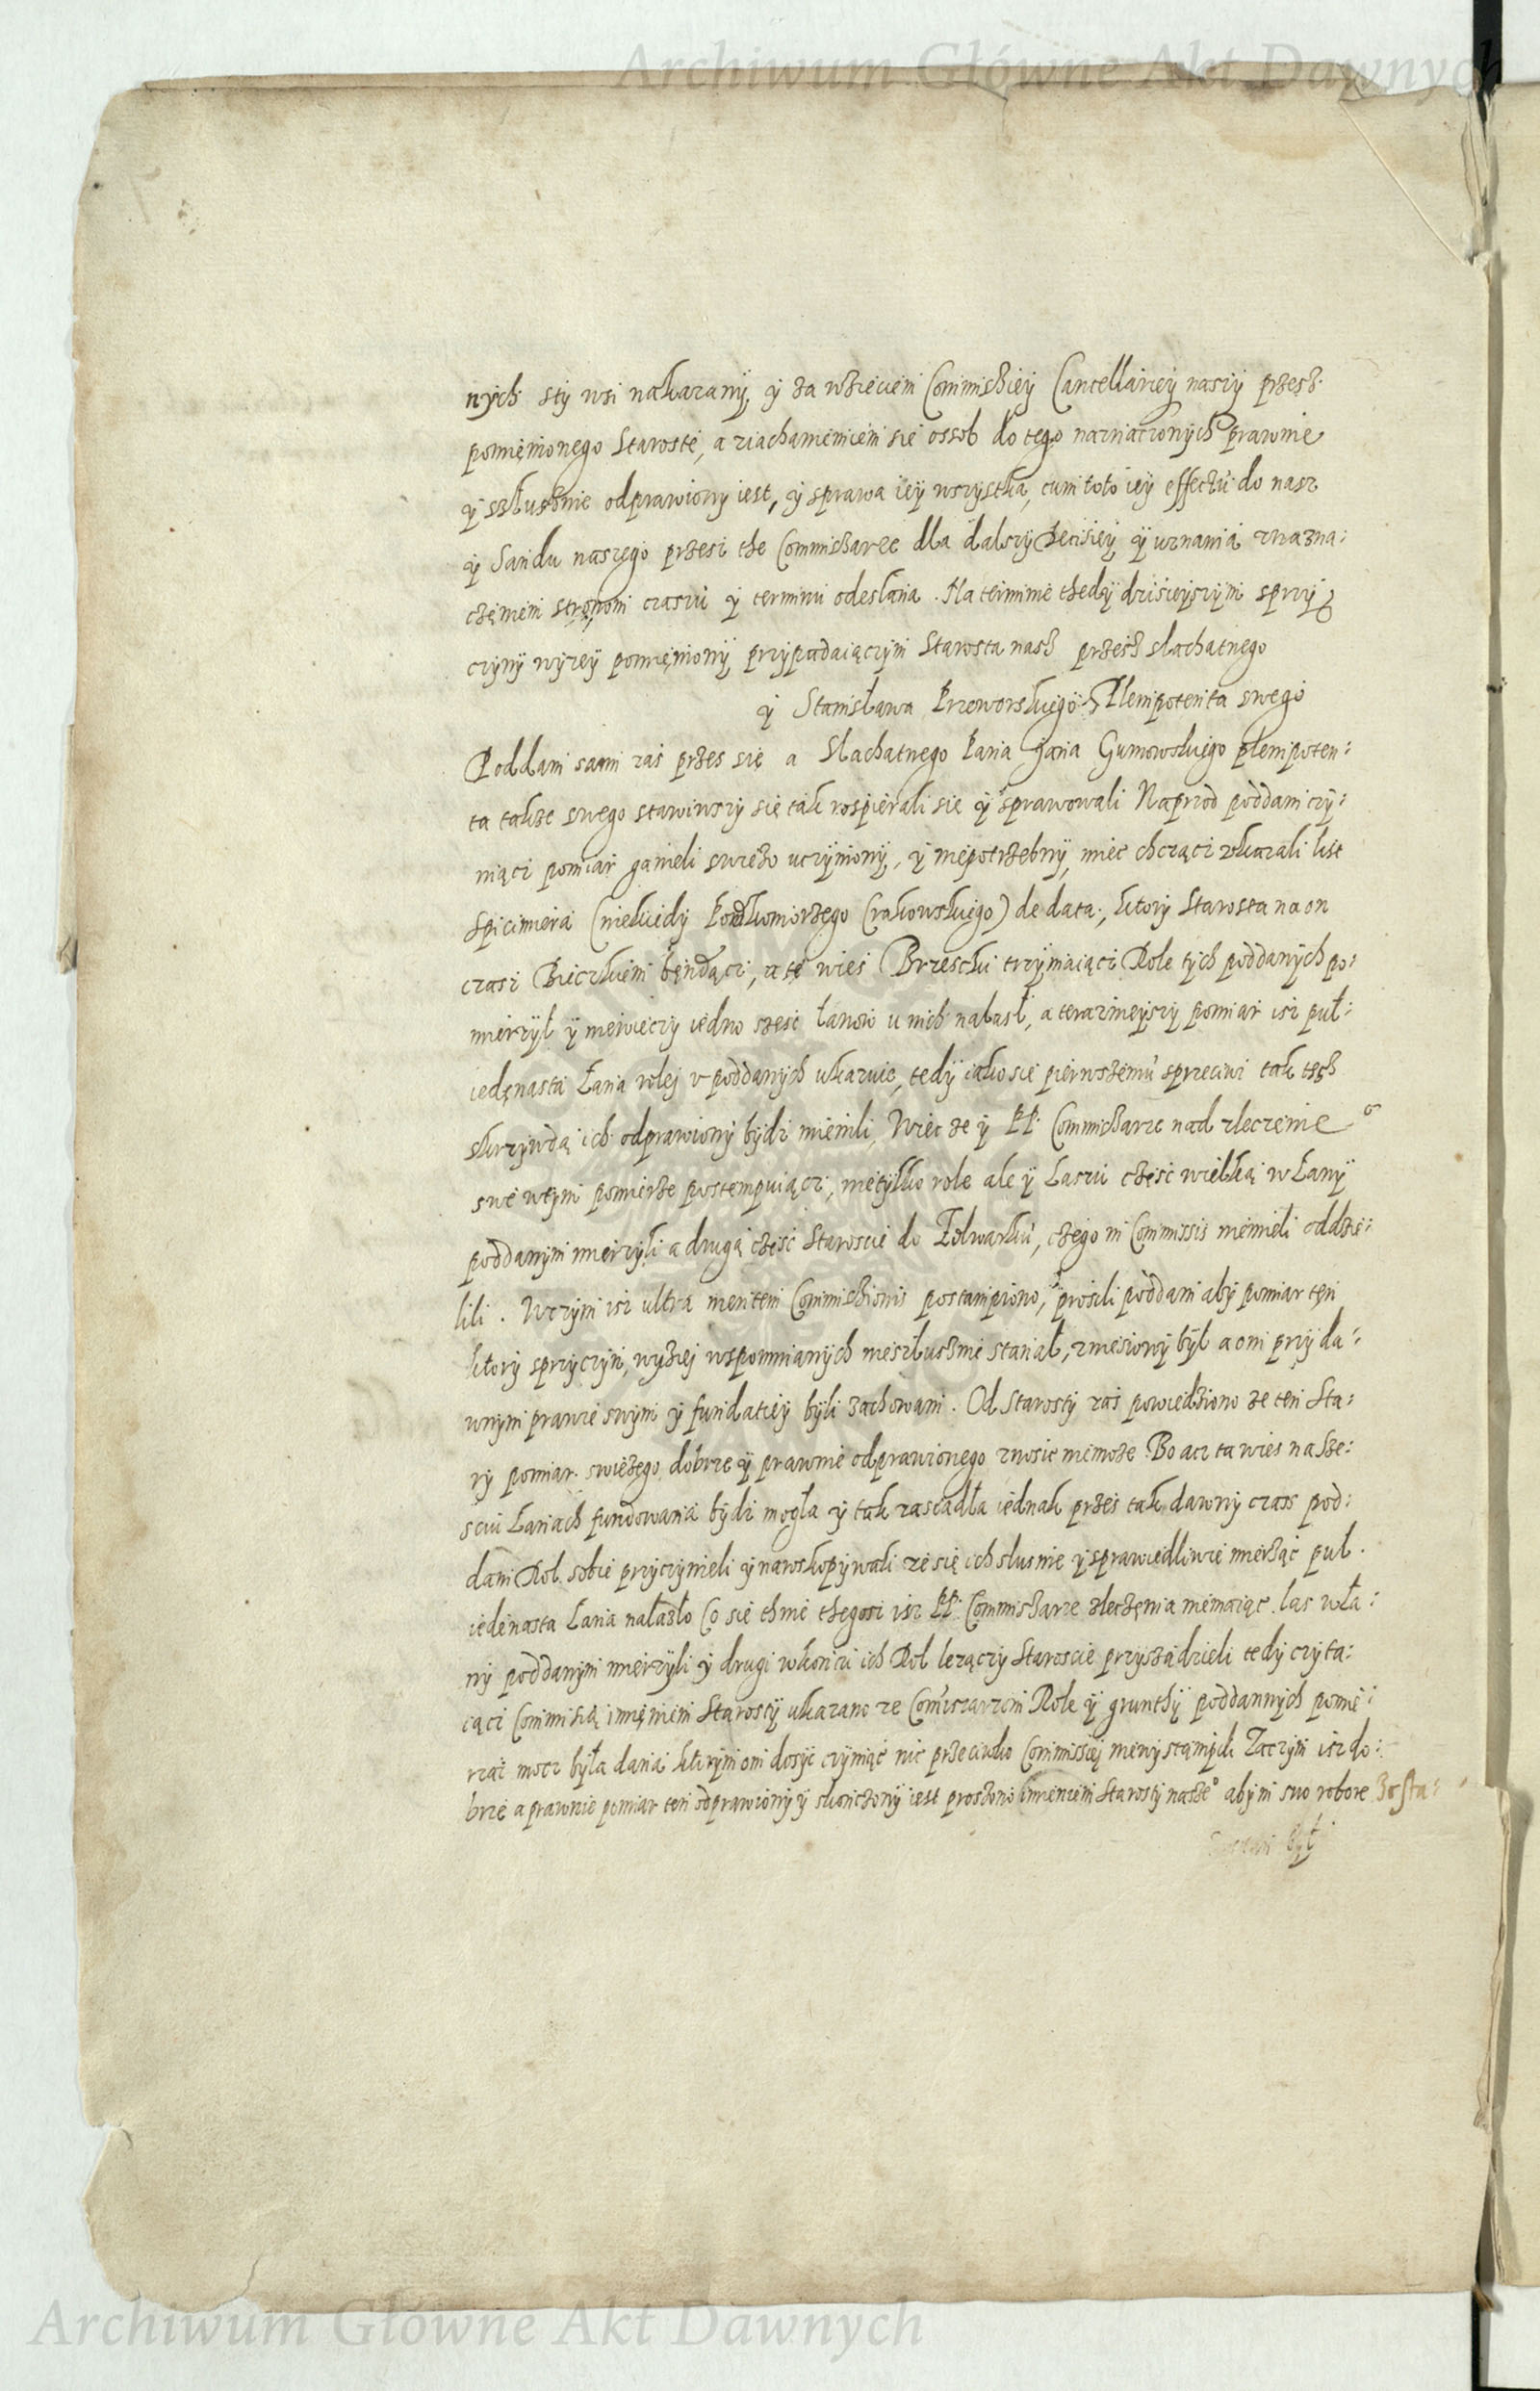 Archiwum Główne Akt Dawnych
nych sty wsi nakazany, y za wzieciem Commissiey Cancellariey naszy przesz
pomięnionego Starostę, a ziachamieniem sie ossob do tego naznaczonych prawnie
y szłusznie odprawiony iest, y sprawa iey wszystka, cum toto iey effectu do nasz
y Sandu naszego przesz the Commissarze dla dalszy Decisiey y uznania znazna:
częniem stronom czaszu y terminu odesłana. Na terminie thedy dzisieyszym sprzy
czyny wyzey pomięniony przypadaiączym Starosta nasz przesz slachatnego
y Stanisława Przeworskiego Plenipotenta swego
Poddani sami zas przes się a Slachatnego Pana Jana Gumowskiego plenipoten:
ta takze swego stawiwszy się tak rospierali sie y sprawowali Naprzod poddani czy:
niąci pomiar ganieli swiezo uczyniony, y niepotrzebny, miec chcząci okazali list
Spicimiera (niekiedy Podkomorzego Crakowskiego) de data:, ktory Starosta na on
czasz Bieczkiem będącz, a tę wies Brzeski trzymaiąci Role tych poddanych po:
mierzył y niewieczy iedno szesc łanow u nich nalazł, a teraznieyszy pomiar isz puł:
iedęnasta Łana roley v poddanych ukazuie, tedy iako sie pierwszemu sprzeciwi tak tesz
skrzywdą ich odprawiony bydz mienili, Wiec ze y PP. Commissarze nad zleczenie
swe wtym pomierze postempuiącz, nietylko role ale y Lassu częsc wielką w Łany
poddanym mierzyli a drugą częsc Staroscie do Folwarku, czego in Commissis niemieli oddzie:
lili. Wczym isz ultra mentem Commissionis postampiono, prosili poddani aby pomiar ten
ktory sprzyczyn, wyzey wspomnianych niesłusznie stanał, zniesiony był a oni przy da:
wnym prawie swym y fundatiey byli zachowani. Od Starosty zas powiedziono ze ten Sta:
ry pomiar swiezego dobrze y prawnie odprawionego znosic niemoze. Bo acz ta wies na sze:
sciu Łaniach fundowana bydz mogła y tak zasiadła iednak przes tak dawny czass pod:
dani Rol sobie przyczynieli y naroskopywali ze się ich slusnie y sprawiedliwie mierząc puł
iedenasta Łana nalazło Co sie thnie thegosz isz PP. Commissarze zleczęnia niemaiąc. las wła:
ny poddanym mierzyli y drugi wkoncu ich Rol lezączy Staroscie przysządzieli tedy czyta:
iącz Commissią imięniem Starosty ukazano ze Comissarzom Role y grunthy poddannych pomie:
rzac mocz była dana ktorym oni dosyc czyniąc nic przeciwko Commissiey niewystąmpili Zaczym isz do:
brze a prawnie pomiar ten odprawiony y skończony iest proszono imieniem Starosty nasze° aby in suo robore Zosta:
był
Archiwum Główne Akt Dawnych